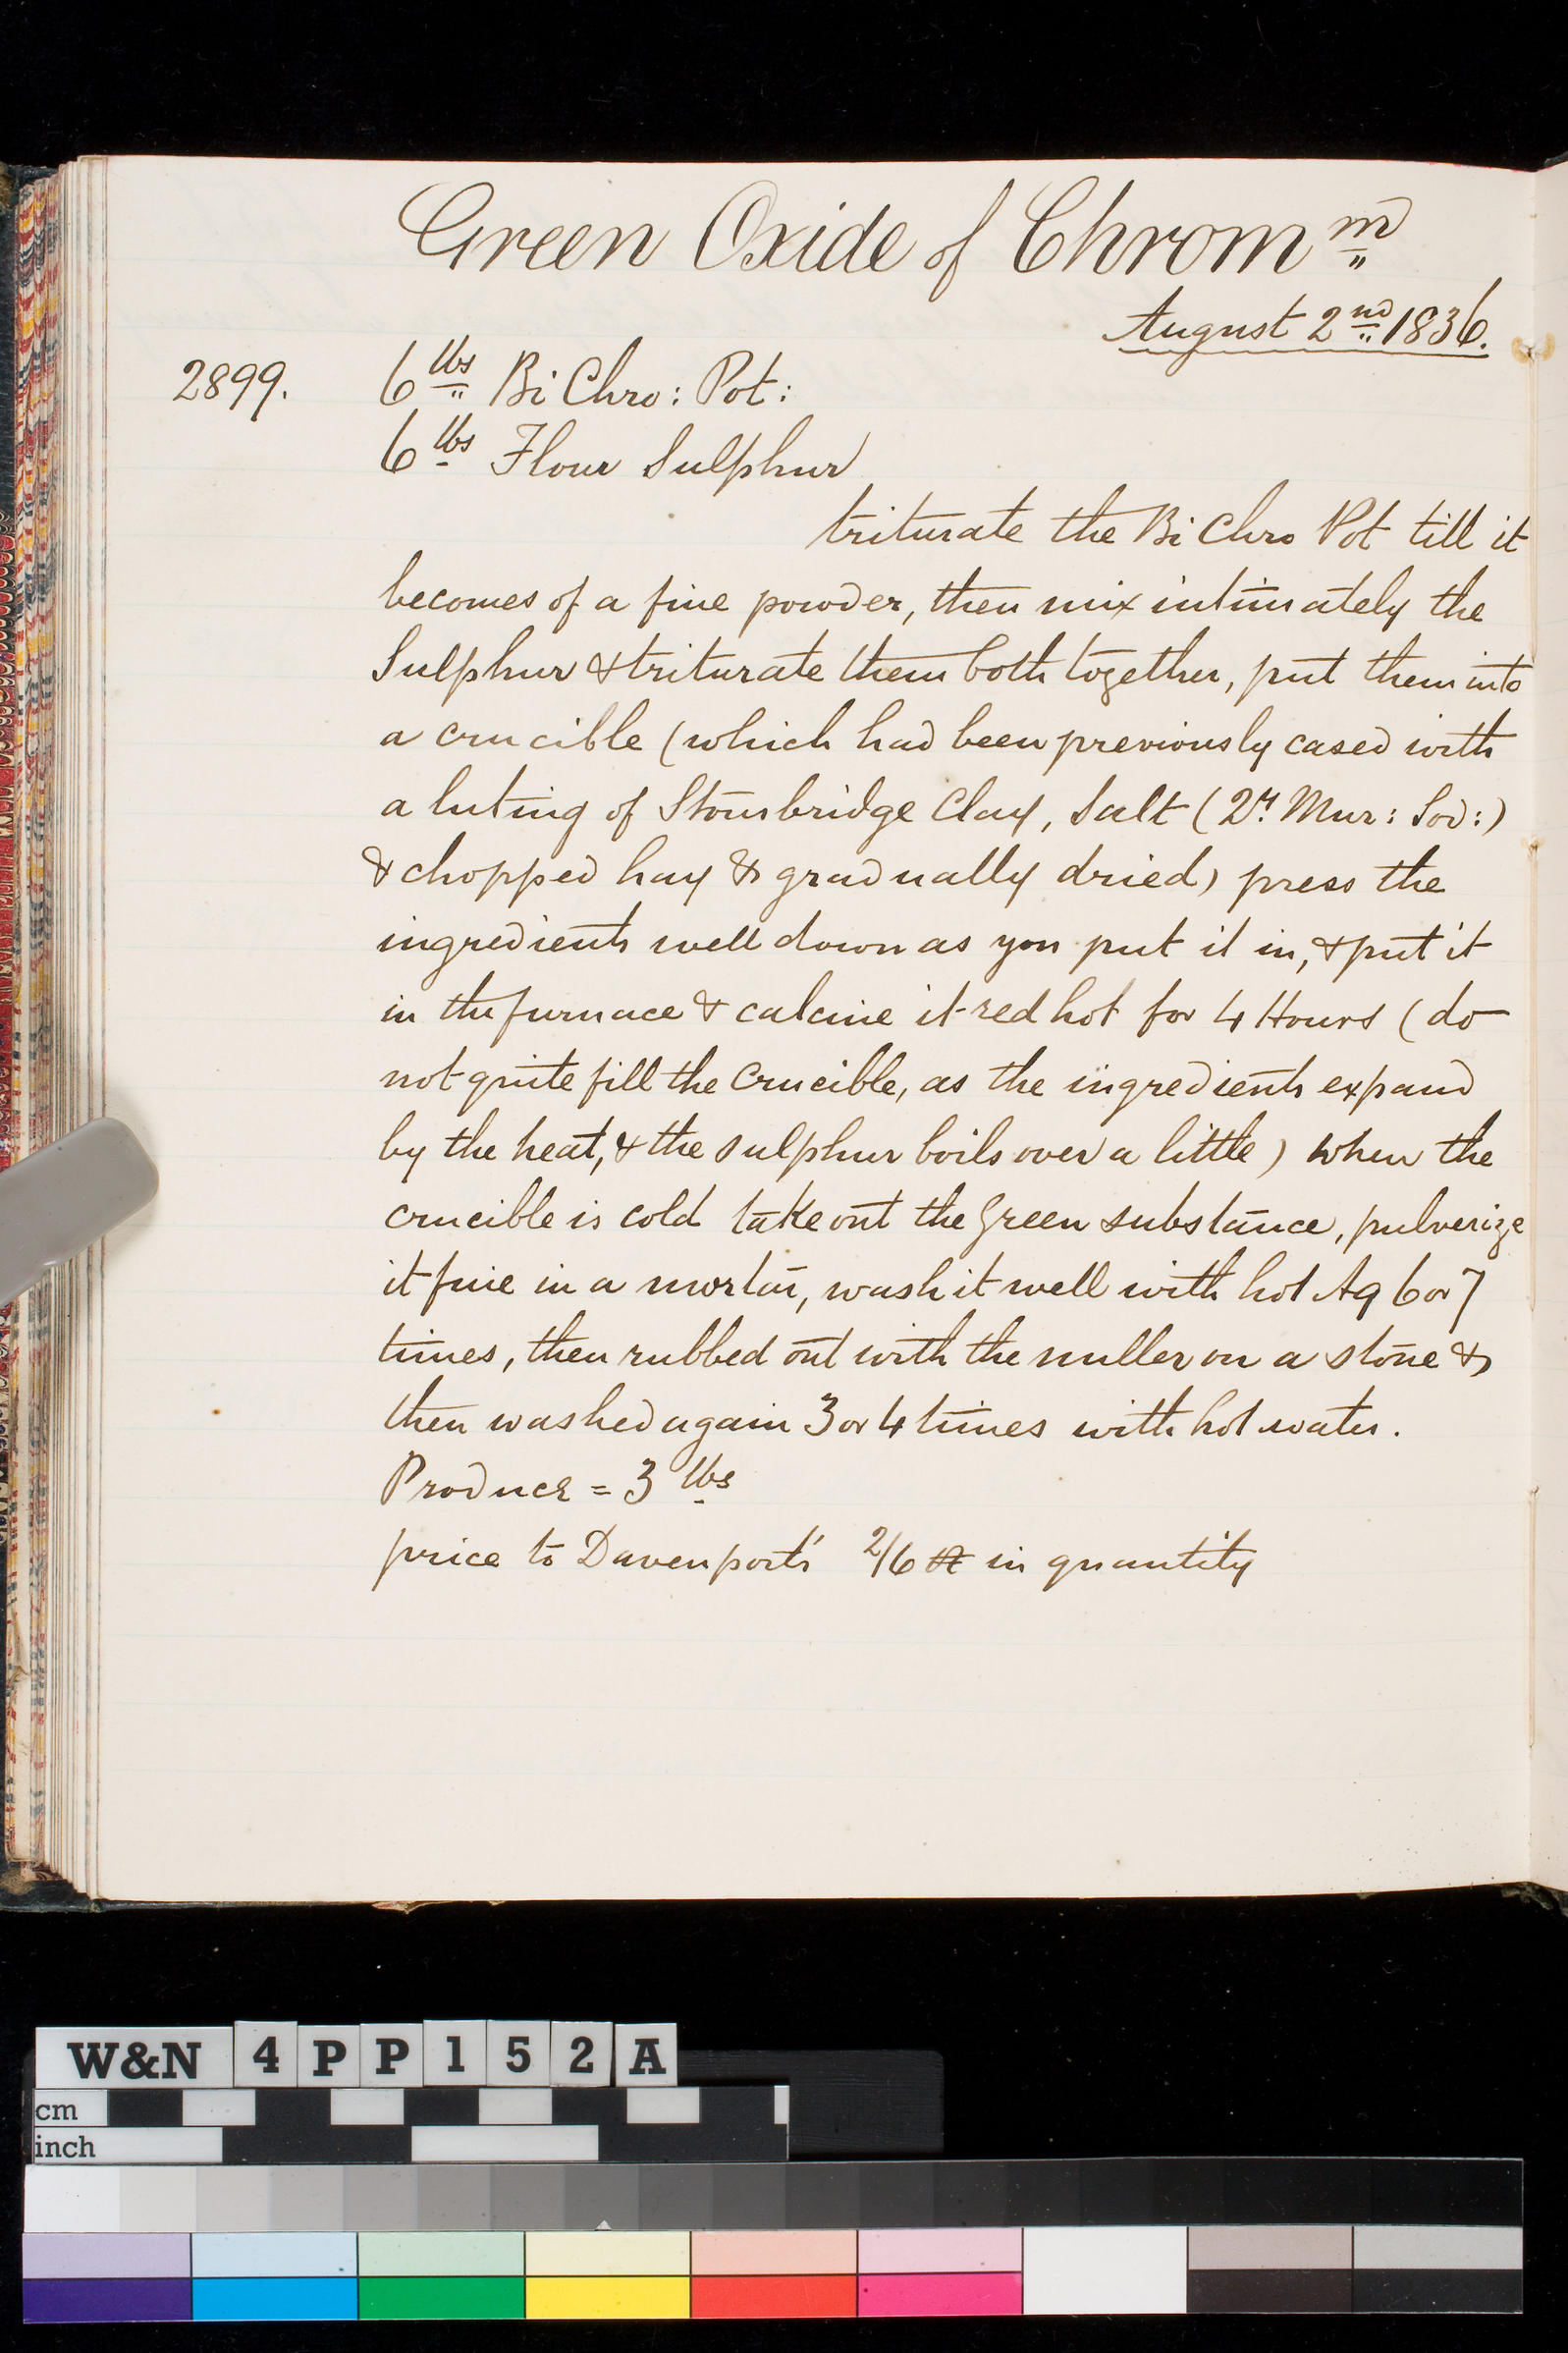 Green Oxide of Chrom m
August 2nd 1836.
2899. 6 lbs Bi Chro: Pot:
6 lbs Flour Sulphur
triturate the Bi Chro Pot till it
becomes of a fine powder, then mix intimately the
Sulphur & triturate them both together, put them into
a crucible (which had been previously cased with
a luting of Stourbridge Clay, Salt (Mur: Sod:)
& chopped hay & gradually dried) press the
ingredients well down as you put it in, & put it
in the furnace & calcine it red hot for 4 Hours (do
not quite fill the Crucible, as the ingredients expand
by the heat, & the sulphur boils over a little) when the
crucible is cold take out the Green substance, pulverize
it fine in a mortar, wash it well with hot Aq 6 or 7
times, then rubbed out with the muller on a stone &
then washed again 3 or 4 times with hot water.
Produce = 3 lbs
price to Davenports' 2/6 ℔ in quantity
W&N 4 P P 1 5 2 A
cm
inch